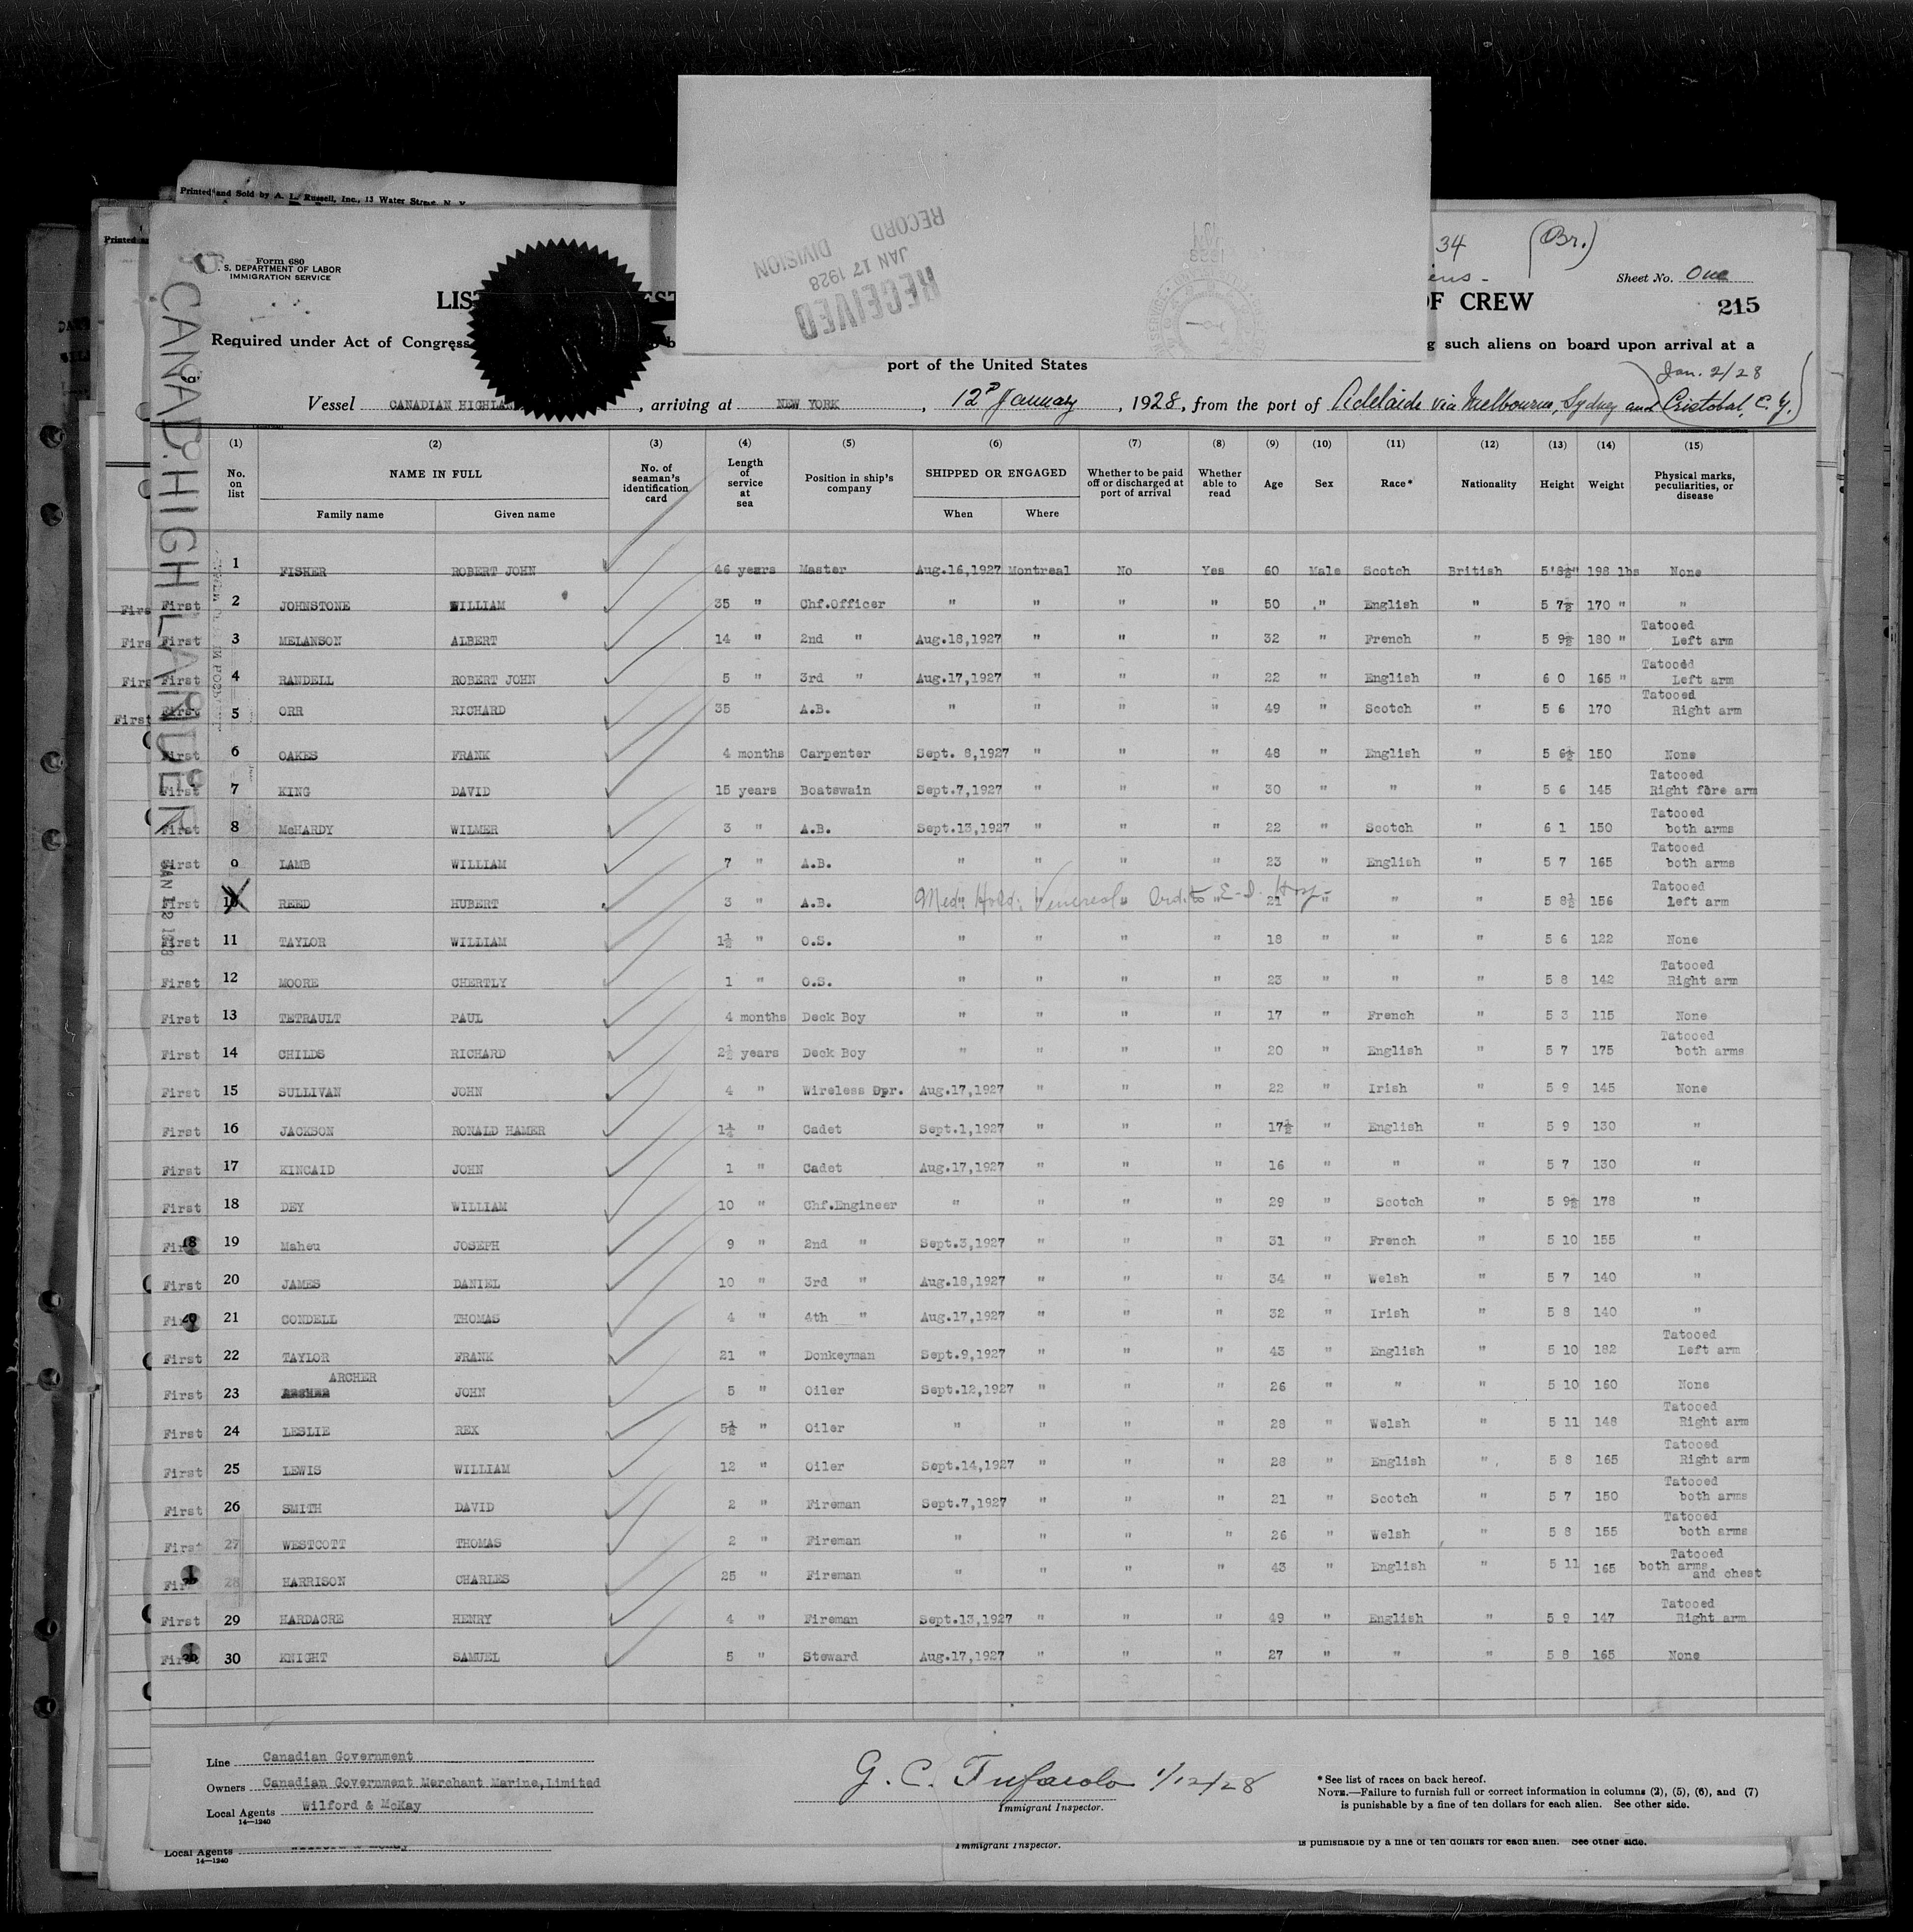 Printed and Sold by A. L. Russell, Inc., 13 Water Street, N. Y.
RECEIVED
JAN 17 1928
RECORD DIVISION
34 (Br.)
Form 680
U. S. DEPARTMENT OF LABOR
IMMIGRATION SERVICE
Sheet No. One
OF CREW
215
Required under Act of Congress such aliens on board upon arrival at a
port of the United States
Jan. 2/28
Vessel CANADIAN HIGHLA , arriving at NEW YORK , 12th January , 1928, from the port of Adelaide via Melbourne, Sydney and Cristobal, C. Z.
CANAD. HIGHLANDER
JAN 12 1928
(1) (2) (3) (4) (5) (6) (7) (8) (9) (10) (11) (12) (13) (14) (15)
No. on list NAME IN FULL Family name Given name No. of seaman's identification card Length of service at sea Position in ship's company SHIPPED OR ENGAGED When Where Whether to be paid off or discharged at port of arrival Whether able to read Age Sex Race* Nationality Height Weight Physical marks, peculiarities, or disease
1 FISHER ROBERT JOHN 46 years Master Aug.16,1927 Montreal No Yes 60 Male Scotch British 5'8½" 198 lbs None
First 2 JOHNSTONE WILLIAM 35 " Chf.Officer " " " " 50 " English " 5 7½ 170 " "
First 3 MELANSON ALBERT 14 " 2nd " Aug.18,1927 " " " 32 " French " 5 9½ 180 " Tatooed Left arm
First 4 RANDELL ROBERT JOHN 5 " 3rd " Aug.17,1927 " " " 22 " English " 6 0 165 " Tatooed Left arm
First 5 ORR RICHARD 35 A.B. " " " " 49 " Scotch " 5 6 170 Tatooed Right arm
First 6 OAKES FRANK 4 months Carpenter Sept. 8,1927 " " " 48 " English " 5 6½ 150 None
First 7 KING DAVID 15 years Boatswain Sept.7,1927 " " " 30 " " " 5 6 145 Tatooed Right fore arm
First 8 McHARDY WILMER 3 " A.B. Sept.13,1927 " " " 22 " Scotch " 6 1 150 Tatooed both arms
First 9 LAMB WILLIAM 7 " A.B. " " " " 23 " English " 5 7 165 Tatooed both arms
First 10 REED HUBERT 3 " A.B. " " " " 21 " " " 5 8½ 156 Tatooed Left arm
Med. Hold: Venereal Ord. to E-I. Hosp-
First 11 TAYLOR WILLIAM 1½ " O.S. " " " " 18 " " " 5 6 122 None
First 12 MOORE CHERTLY 1 " O.S. " " " " 23 " " " 5 8 142 Tatooed Right arm
First 13 TETRAULT PAUL 4 months Deck Boy " " " " 17 " French " 5 3 115 None
First 14 CHILDS RICHARD 2½ years Deck Boy " " " " 20 " English " 5 7 175 Tatooed both arms
First 15 SULLIVAN JOHN 4 " Wireless Opr. Aug.17,1927 " " " 22 " Irish " 5 9 145 None
First 16 JACKSON RONALD HAMER 1¼ " Cadet Sept.1,1927 " " " 17½ " English " 5 9 130 "
First 17 KINCAID JOHN 1 " Cadet Aug.17,1927 " " " 16 " " " 5 7 130 "
First 18 DEY WILLIAM 10 " Chf.Engineer " " " " 29 " Scotch " 5 9½ 178 "
First 19 Maheu JOSEPH 9 " 2nd " Sept.3,1927 " " " 31 " French " 5 10 155 "
First 20 JAMES DANIEL 10 " 3rd " Aug.18,1927 " " " 34 " Welsh " 5 7 140 "
First 21 CONDELL THOMAS 4 " 4th " Aug.17,1927 " " " 32 " Irish " 5 8 140 "
First 22 TAYLOR FRANK 21 " Donkeyman Sept.9,1927 " " " 43 " English " 5 10 182 Tatooed Left arm
First 23 ARCHER JOHN 5 " Oiler Sept.12,1927 " " " 26 " " " 5 10 160 None
First 24 LESLIE REX 5½ " Oiler " " " " 28 " Welsh " 5 11 148 Tatooed Right arm
First 25 LEWIS WILLIAM 12 " Oiler Sept.14,1927 " " " 28 " English " 5 8 165 Tatooed Right arm
First 26 SMITH DAVID 2 " Fireman Sept.7,1927 " " " 21 " Scotch " 5 7 150 Tatooed both arms
First 27 WESTCOTT THOMAS 2 " Fireman " " " " 26 " Welsh " 5 8 155 Tatooed both arms
First 28 HARRISON CHARLES 25 " Fireman " " " " 43 " English " 5 11 165 Tatooed both arms and chest
First 29 HARDACRE HENRY 4 " Fireman Sept.13,1927 " " " 49 " English " 5 9 147 Tatooed Right arm
First 30 KNIGHT SAMUEL 5 " Steward Aug.17,1927 " " " 27 " " " 5 8 165 None
Line Canadian Government
Owners Canadian Government Merchant Marine,Limited
Local Agents Wilford & McKay
14—1240
G. C. Tufarolo 1/12/28
Immigrant Inspector.
*See list of races on back hereof.
NOTE.—Failure to furnish full or correct information in columns (2), (5), (6), and (7)
is punishable by a fine of ten dollars for each alien. See other side.
Local Agents
14—1240
Immigrant Inspector.
is punishable by a fine of ten dollars for each alien. See other side.